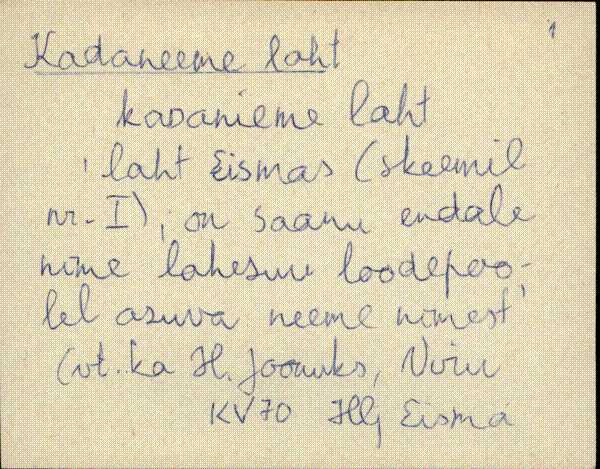 1
Kadaneeme laht
kaDanieme laht
'laht Eismas (skeemil
nr. I), on saanu endale
nime lahesuu loodepoo-
lel asuva neeme nimest'
(vt. ka H. Joonuks, Viru
KV70 Hlj Eisma